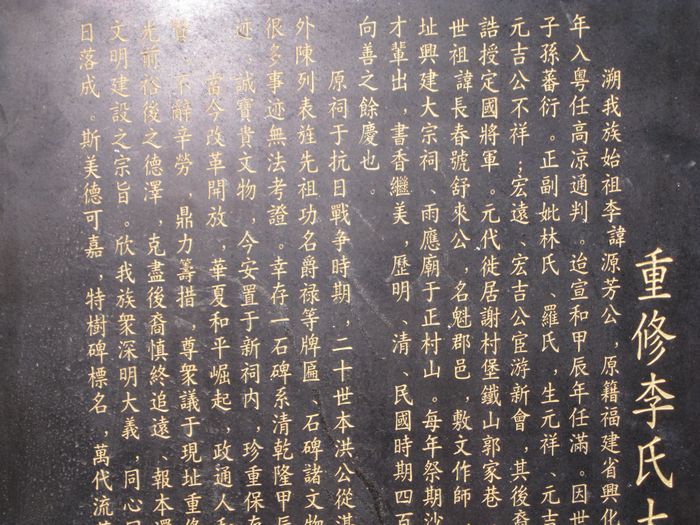 重修李氏
溯我族始祖李諱源芳公，原籍福建省興化
年入粵任高凉通判。迨宣和甲辰年任滿。因世
子孫蕃衍。正副妣林氏、羅氏，生元祥、元吉
元吉公不祥；宏遠、宏吉公宦游新會，其後裔
誥授定國將軍。元代徙居謝村堡鐵山郭家巷
世祖諱長春號舒來公，名魁郡邑，敷文作師，
址興建大宗祠、雨應廟于正村山。每年祭期沙
才輩出，書香繼美，歷明、清、民國時期四百
向善之餘慶也。
原祠于抗日戰争時期，二十世本洪公從湛
外陳列表旌先祖功名爵禄等牌匾、石碑諸文物
很多事迹無法考證。幸存一石碑系清乾隆甲辰
迹。誠寶貴文物，今安置于新祠内，珍重保存
當今改革開放，華夏和平崛起，政通人和
不辭辛勞，鼎力籌措，尊衆議于現址重修
光前裕後之德澤，克盡後裔慎終追遠、報本還
文明建設之宗旨。欣我族衆深明大義，同心
日落成。斯美德可嘉，特樹碑標名，萬代流